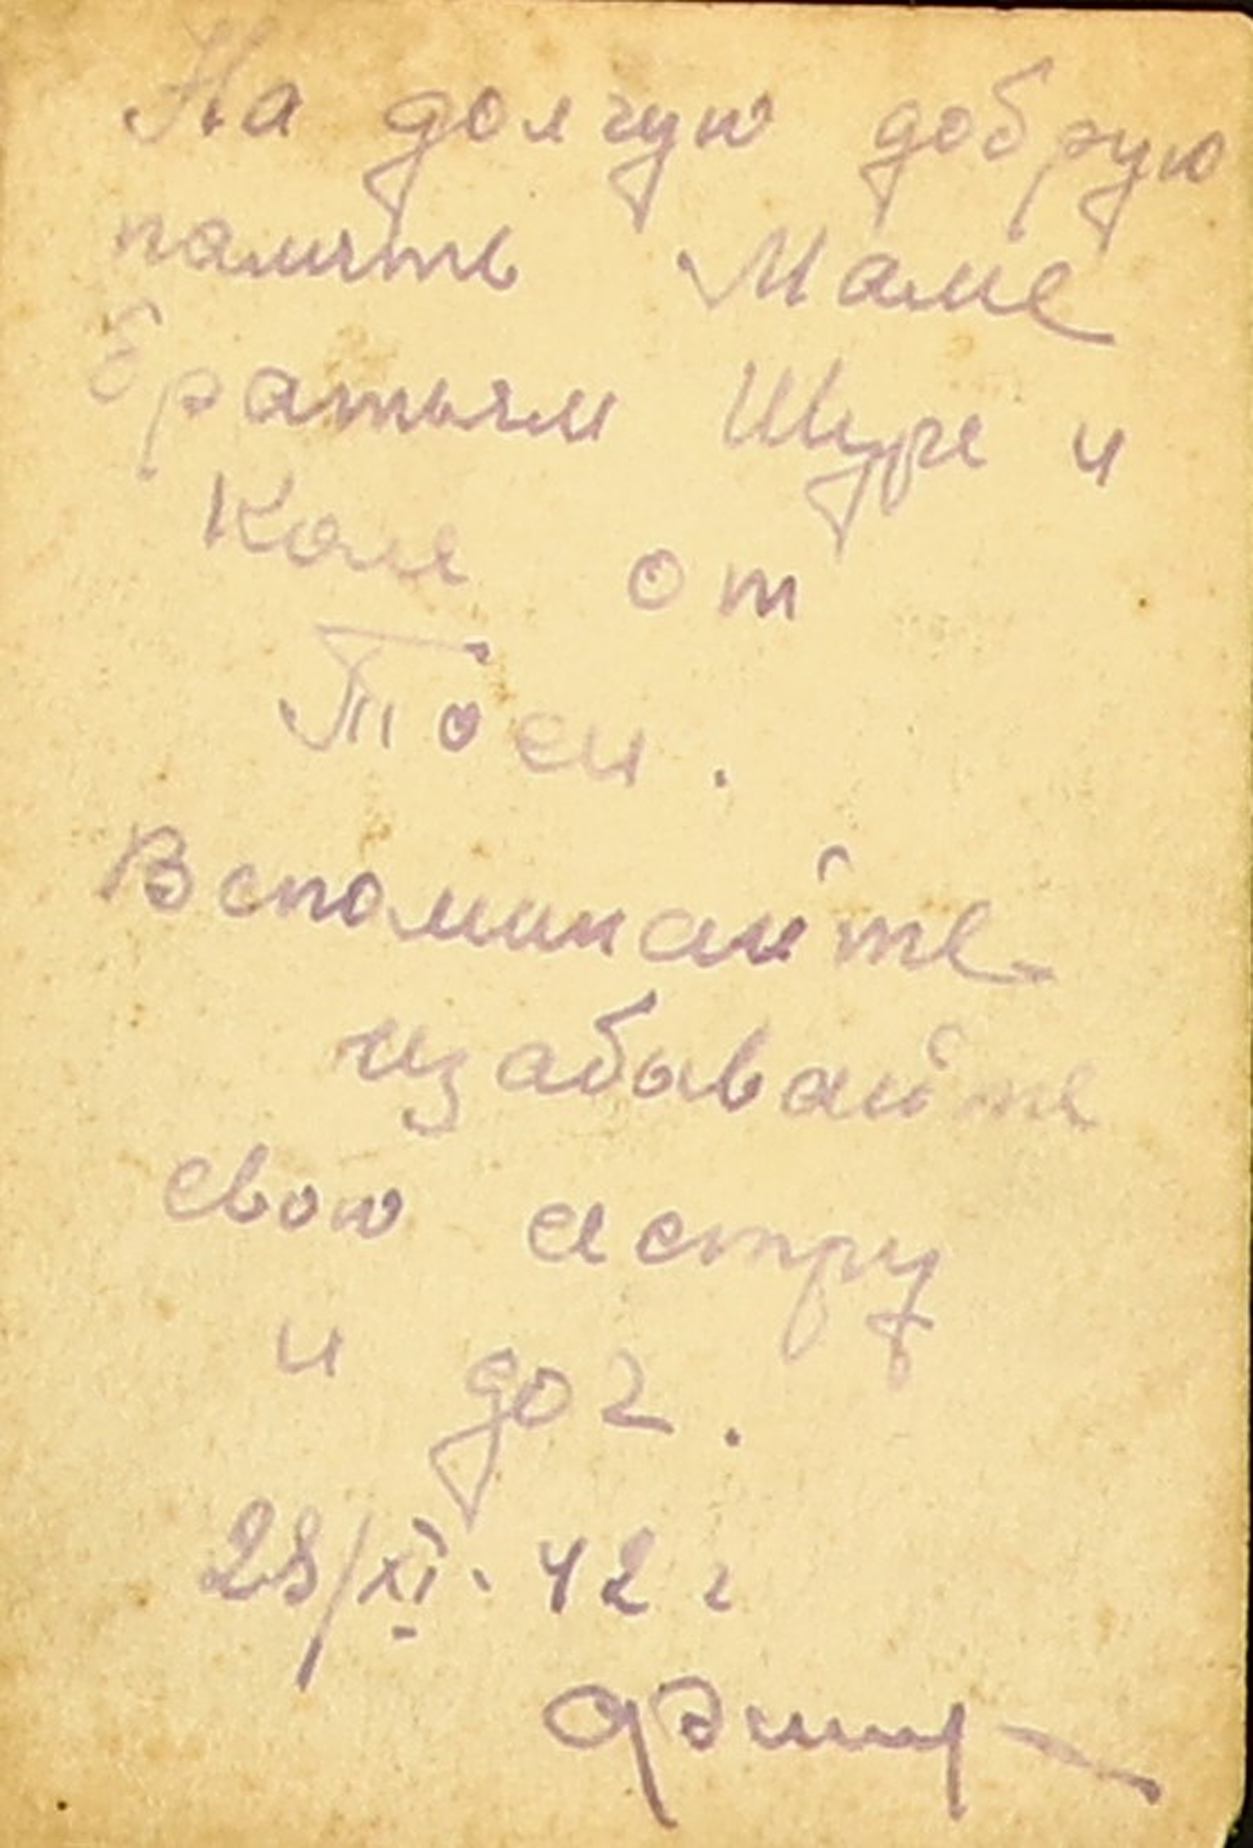 На долгую добрую
память Маме
братьям Шуре и
Коле от
Тоси.
Вспоминайте
изабывайте
свою сестру
и доч.
28/XI. 42 г